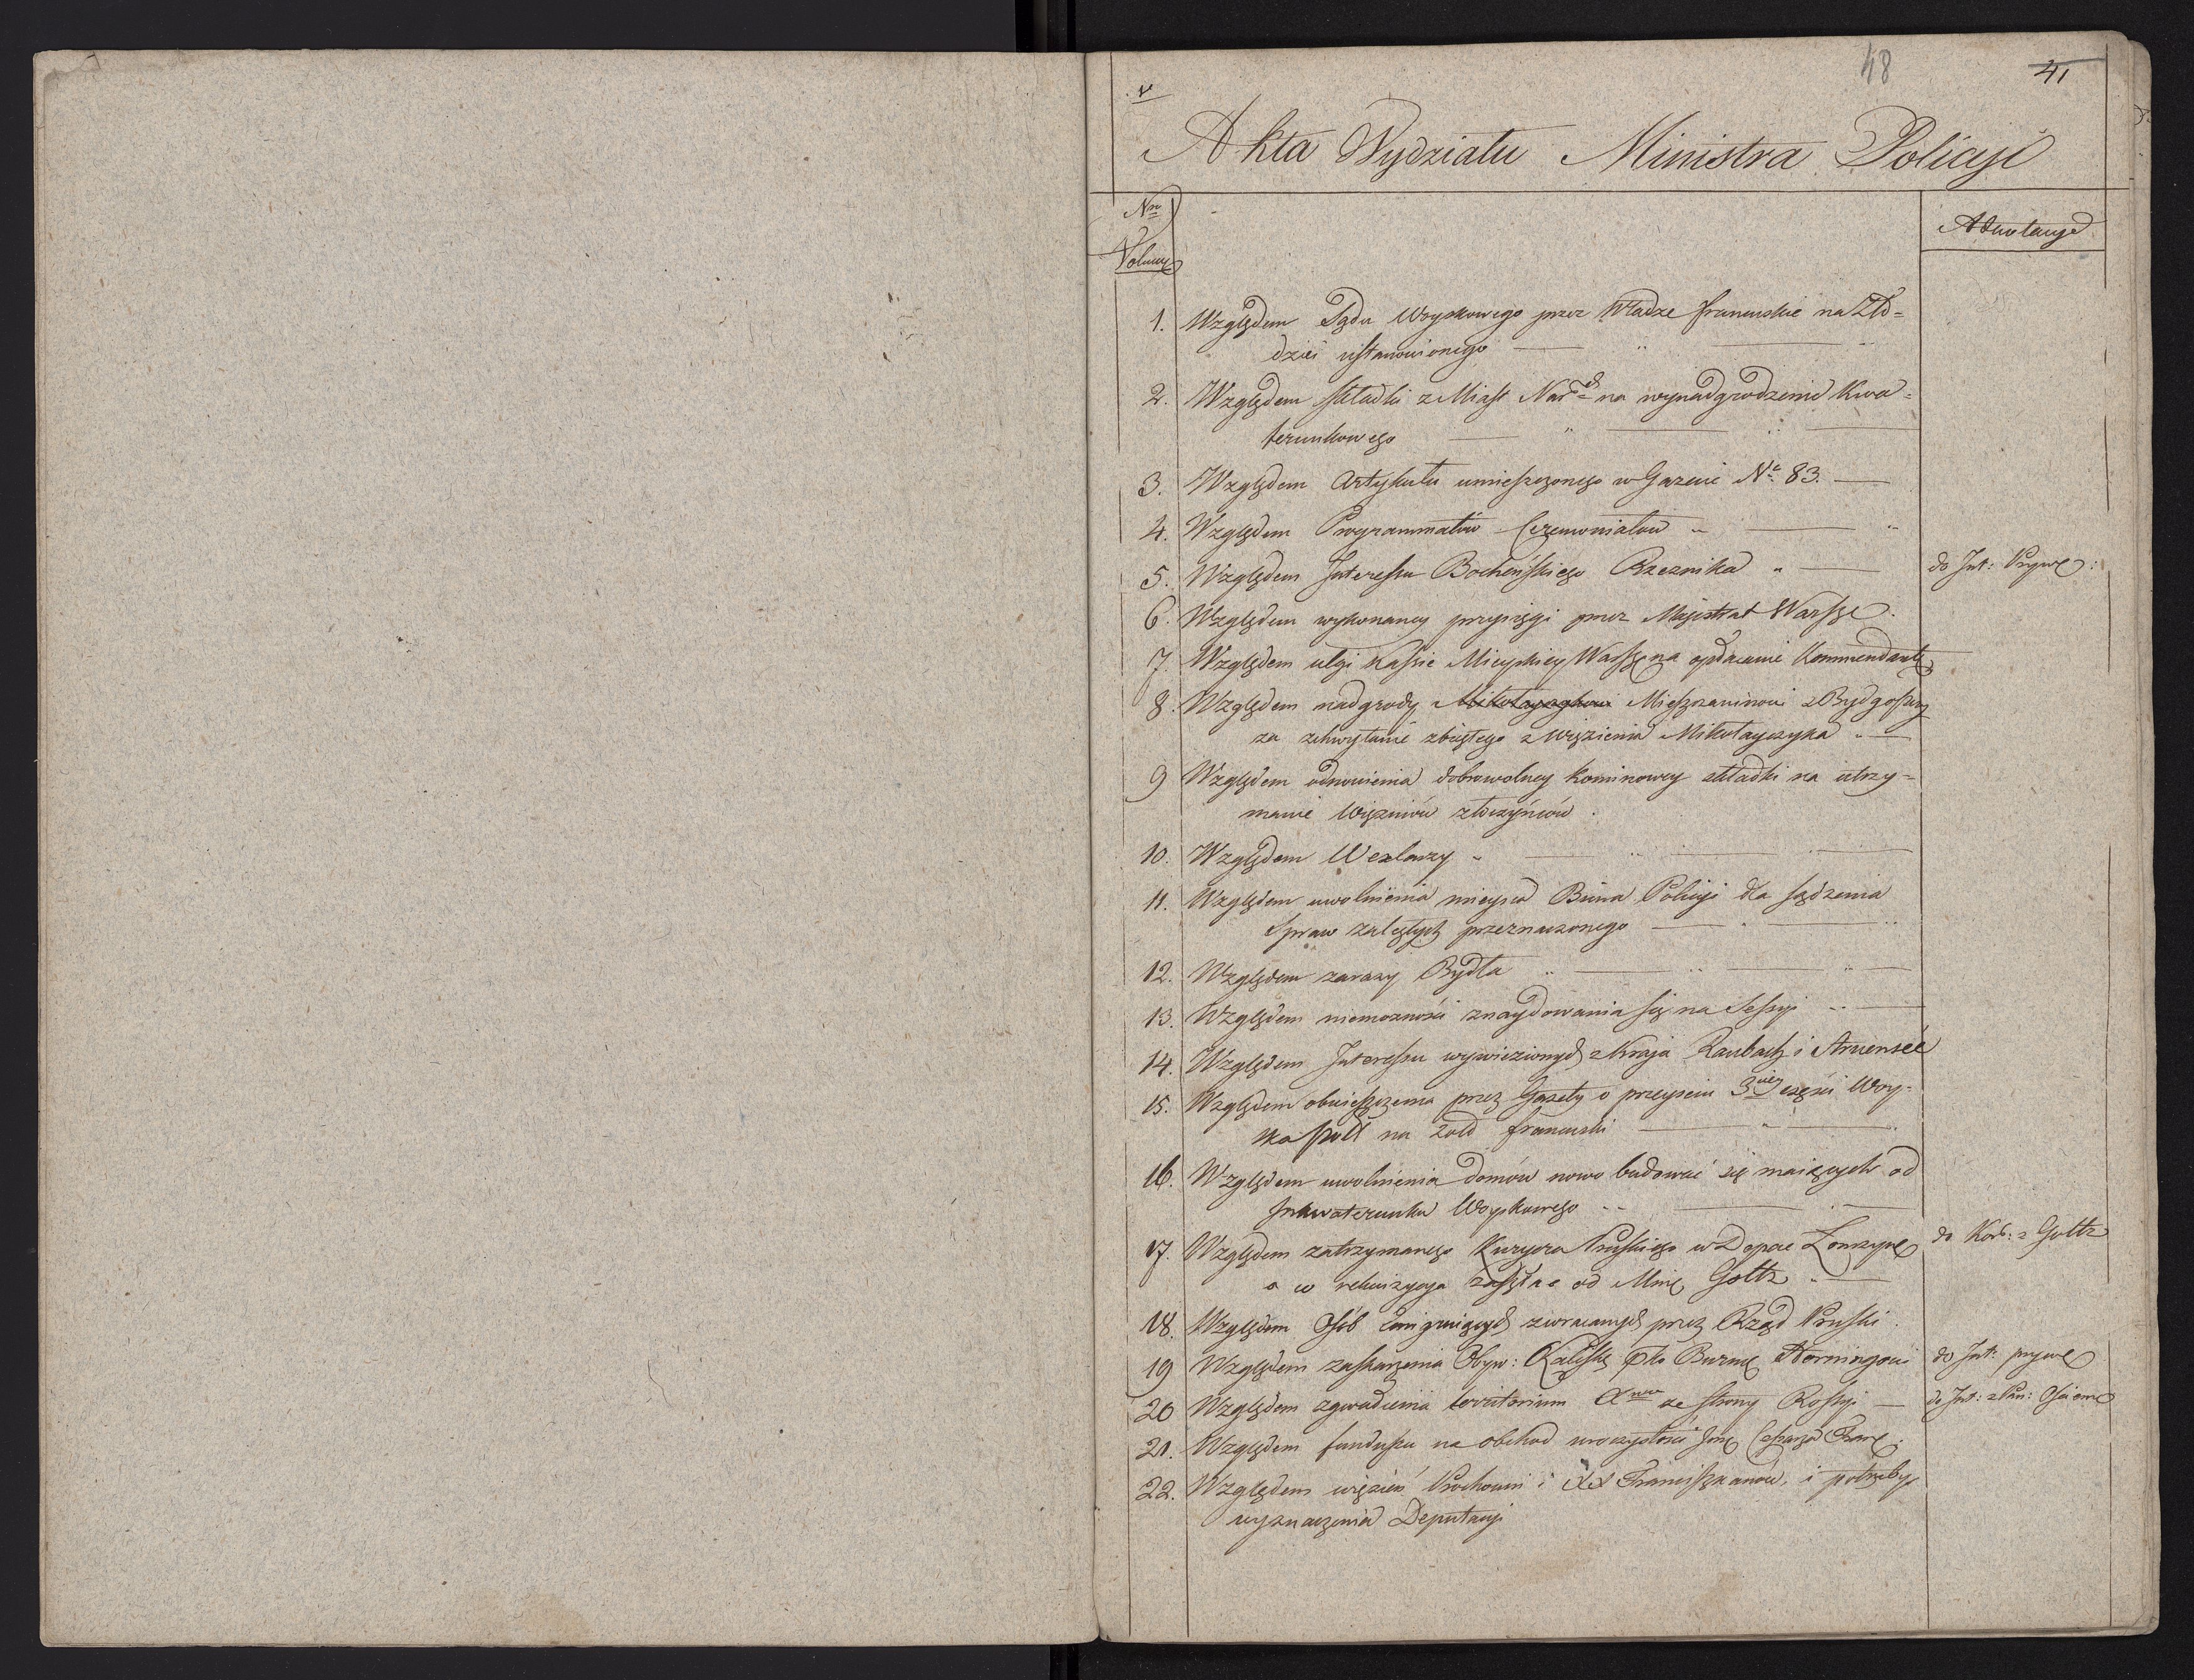 48
41
Akta Wydziału Ministra Policyi
Nro
Volum
Adnotacye
1. Względem Sądu Woyskowego przez Władze francuskie na Zło=
dziei ustanowionego
2. Względem składki z Miast na wynadgrodzenie Kwa=
terunkowego
3. Względem Artykułu umieszczonego w Gazecie No 83.
4. Względem Programmatów Ceremoniałów
5. Względem Interessu Bocheńskiego Rzeznika
do Int: Prywe:
6. Względem wykonaney przysięgi przez Majistrat Warsze.
7. Względem ulgi Kassie Mieyskiey Warsze na opłacanie Kommendante
8. Względem nadgrody Mikołayczykowi Mieszczaninowi z Bydgoszczy
za schwytanie zbiegłego z więzienia Mikołayczyka
9 Względem odnowienia dobrowolney kominowey składki na utrzy=
manie Więzniów złoczyńców.
10. Względem Wexlarzy
11. Względem uwolnienia mieysca Biura Policyi dla sądzenia
Spraw zaległych przeznaczonego
12. Względem zarazy Bydła
13. Względem niemozności znaydowania się na Sessyi
14. Względem Interessu wywiezionych z Kraju Raubach i Struensée
15. Względem obwieszczenia przez Gazety o przeyściu 3ciey części Woy=
ska Polł na zołd francuski
16. Względem uwolnienia domów nowo budować się maiących od
Inkwaterunku Woyskowego
17. Względem zatrzymanego Kuryera Pruskiego w Depae Łomzyne
a w rekwizycya zaszła od Mine Goltz
do Kor: z Goltz
18. Względem Osób Emigruiących zwracanych przez Rząd Pruski.
19 Względem zaskarzenia Obyw: Kaliske pko Burme Horningowi
do Int: prywe
20 Względem zgwałcenia territorium Xwa ze strony Rossyi
do Int: z Pań: Ościenne
21. Względem funduszu na obchod uroczystości Cesarza Franc.
22. Względem więzień Prochowni i XX Franciszkanów, i potrzeby
wyznaczenia Deputacyi